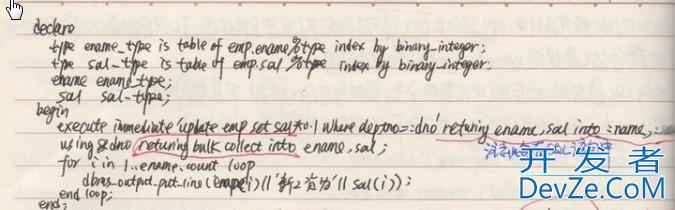 declare
type ename_type is table of emp.ename%type index by binary_integer;
type sal_type is table of emp.sal%type index by binary_integer;
ename ename_type;
sal sal_type;
begin
execute immediate 'update emp set sal*0.1 where deptno=:dno' returing ename, sal into :name,
using &dno returing bulk collect into ename, sal;
for i in 1..ename.count loop
dbms_output.put_line(ename(i)||'新工资为'||sal(i));
end loop;
end;
开发者
DevZe.CoM